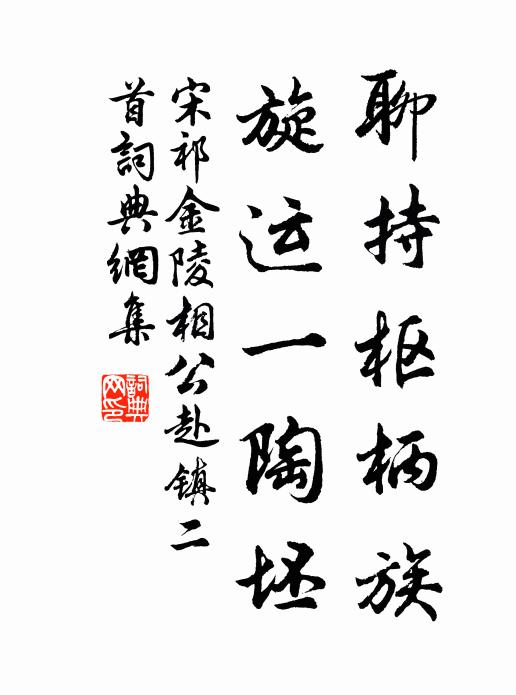 聊持枢柄族
旋运一陶坯
宋祁金陵相公赴镇二
首詞典網集
詞典网印